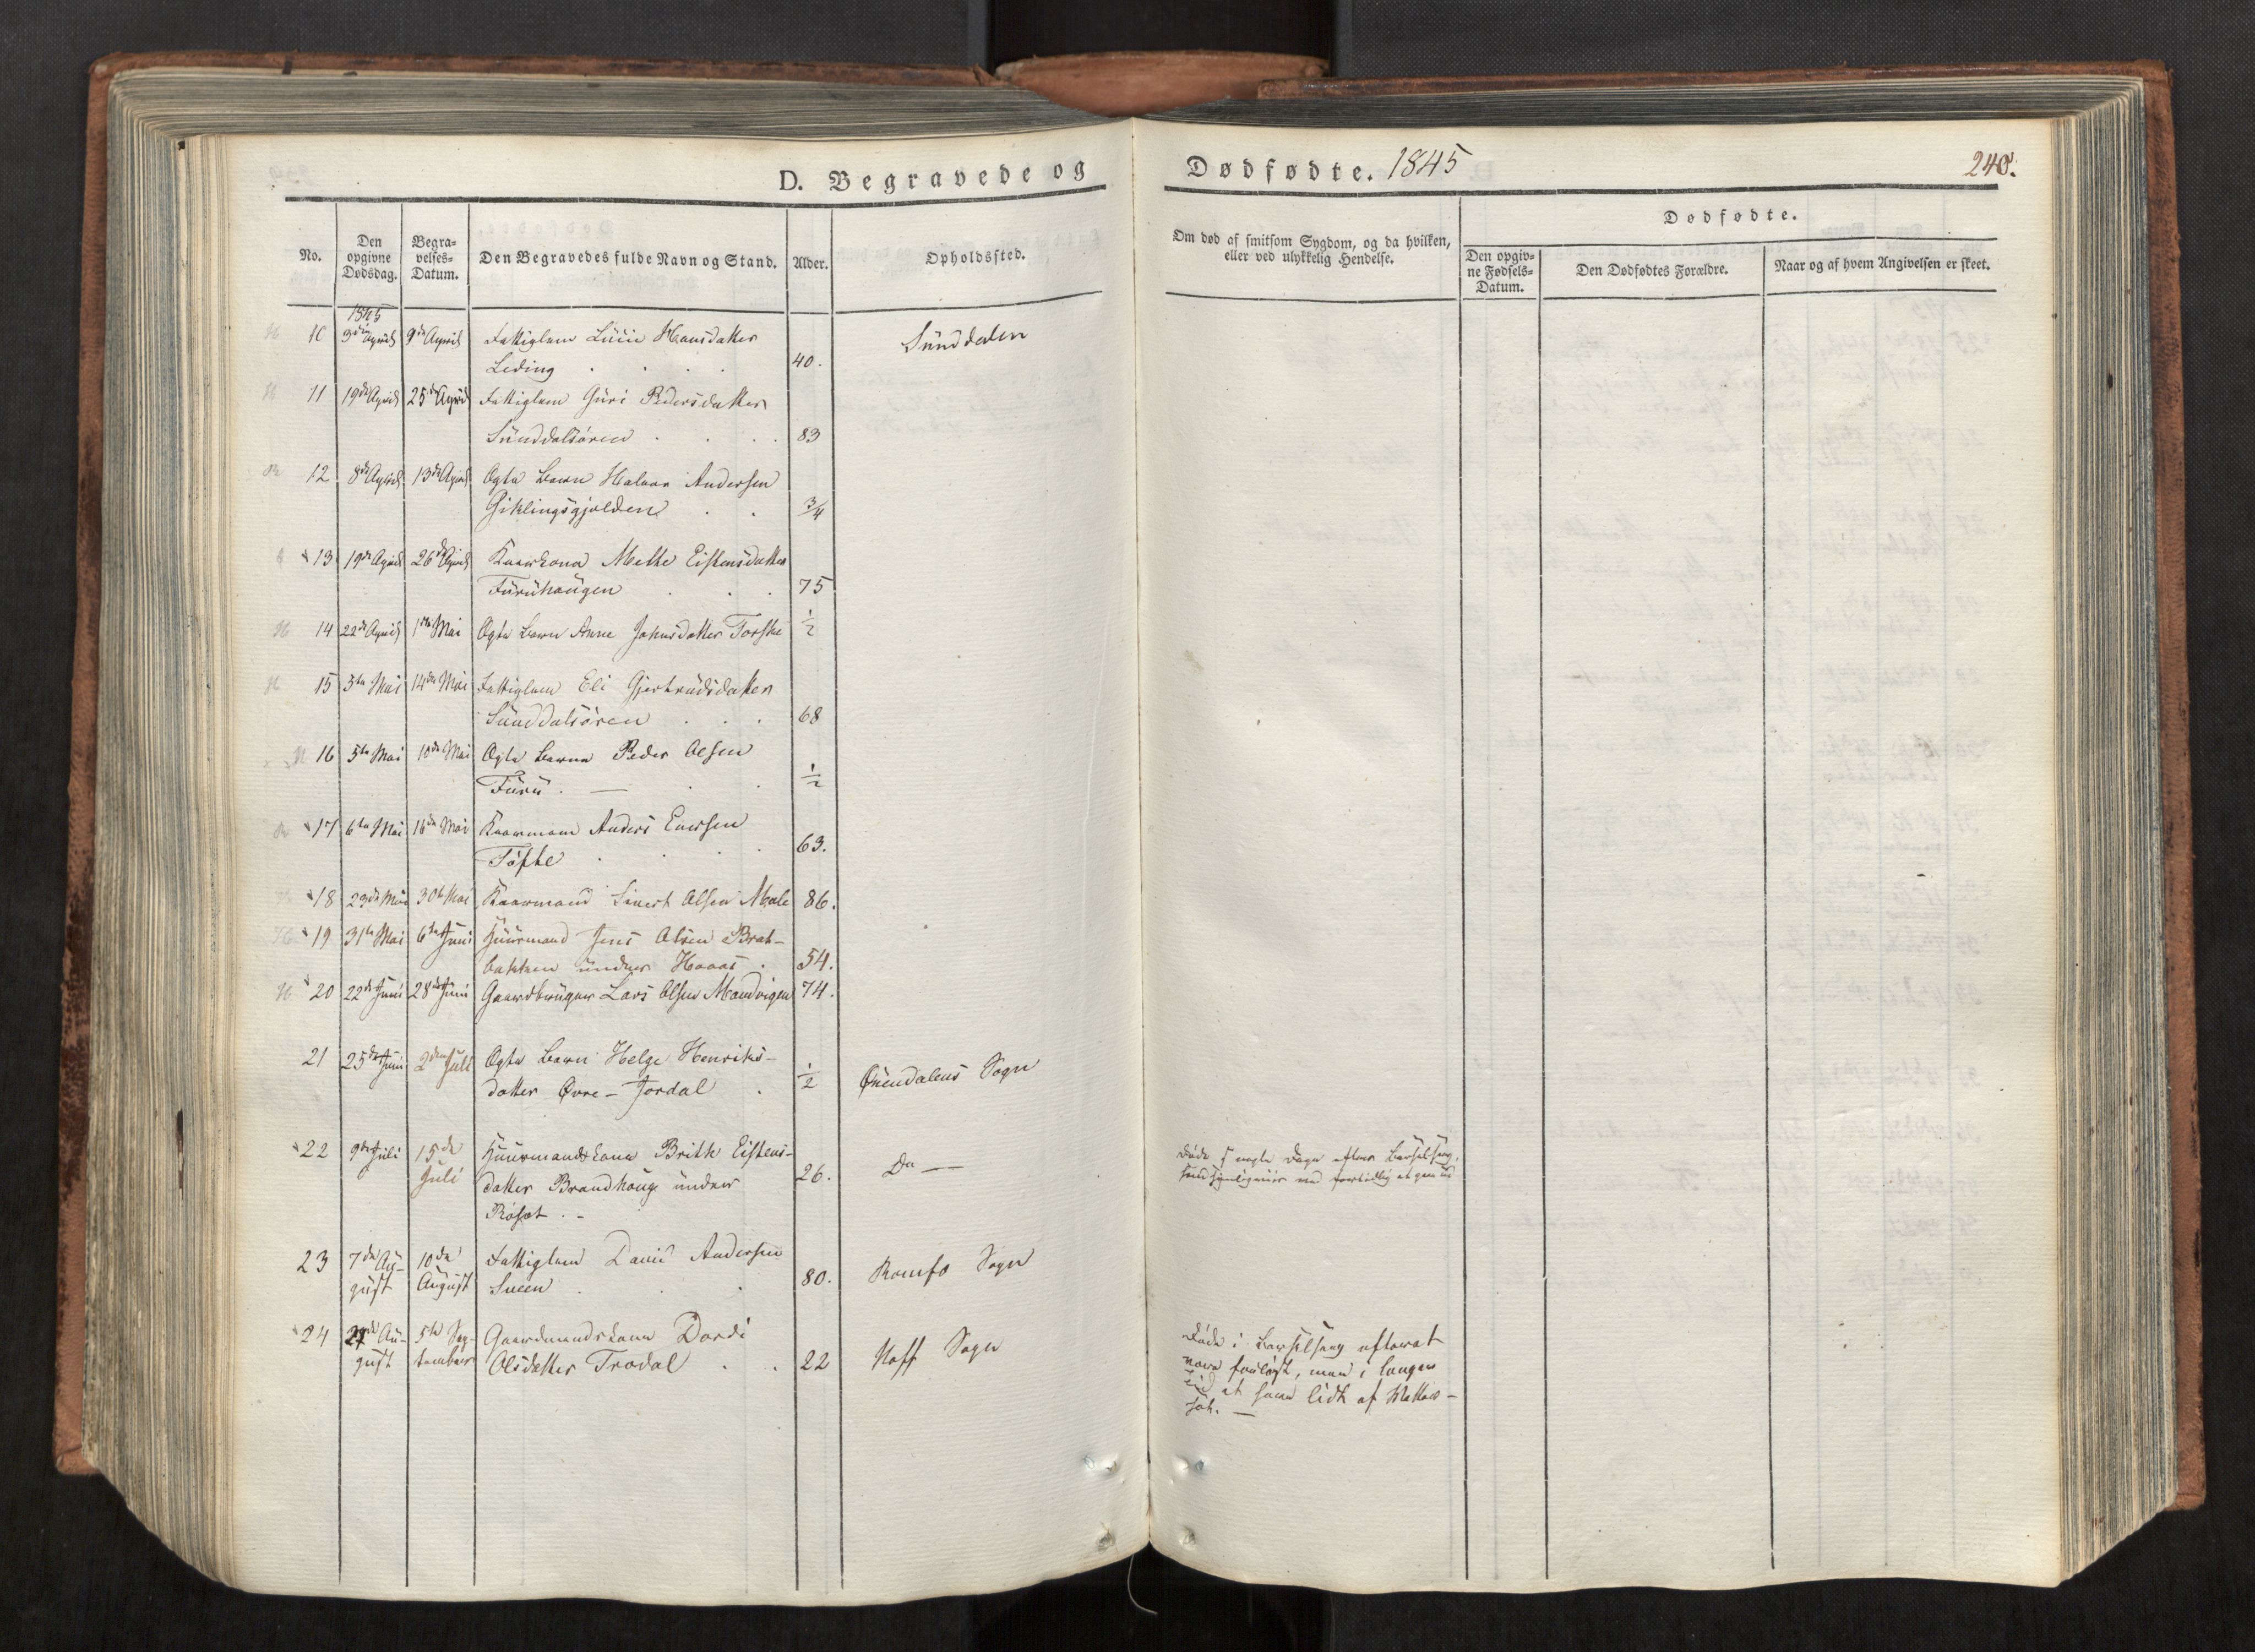 D. Begravede og Dødfødte. 1845
240.
No.
Den opgivne Dødsdag.
Begravelses-Datum.
Den Begravedes fulde Navn og Stand.
Alder.
Opholdssted.
Om død af smitsom Sygdom, og da hvilken,
eller ved ulykkelig Hendelse.
Dødfødte.
Den opgivne Fødsels-Datum.
Den Dødfødtes Forældre.
Naar og af hvem Angivelsen er skeet.
1845
10 3die April 9de April Fattiglem Hansdatter Sünddalen
Leding 40.
11 19de April 25de April Fattiglem Güri Pedersdatter
Sünddalsören 83
12 8de April 13de April Ægte Barn Halvor Andersen
Giklingsgjolden 3/4
13 19de April 26de April Kaarkona Mette Eistensdatter
Fürühaügen 75
14 22de April 1ste Mai Ægte Barn Anne Johnsdatter Torske 1/2
15 3die Mai 14de Mai Fattiglem Eli Gjertrüdsdatter
Sünddalsören 68
16 5te Mai 10de Mai Ægte Barn Peder Olsen
Fürü. — 1/2
17 6te Mai 16de Mai Kaarmand Anders Enersen
Töfte 63.
18 23de Mai 30te Mai Kaarmand Sivert Olsen Male 86.
19 31te Mai 6te Juni Hüüsmand Jens Olsen Brat-
bakken ünder Hoaas. 54.
20 22de Juni 28de Juni Gaardbrüger Lars Olsen 74.
21 25de Juni 2den Juli Ægte Barn Helge Henriks-
datter Øvre-Jordal. 1/2 Øxendalens Sogn
22 9de Juli 15de Hüüsmandskona Brith Eistens-
Juli datter Brandhaüg ünder 26. Do —
Röset. -
Döde nogle Dage efter Barselseng,
23 7de Aü- 10de Fattiglem David Andersen
güst Aügüst Sveen 80. Romfo Sogn
24 27de Aü- 5te Sep- Gaardmandskona Dordi
güst tember Olsdatter Trædal 22 Hoff Sogn
Döde i Barselseng efterat
være forlöst, men i længere
Tid at have lidt af Watter-
sot. —